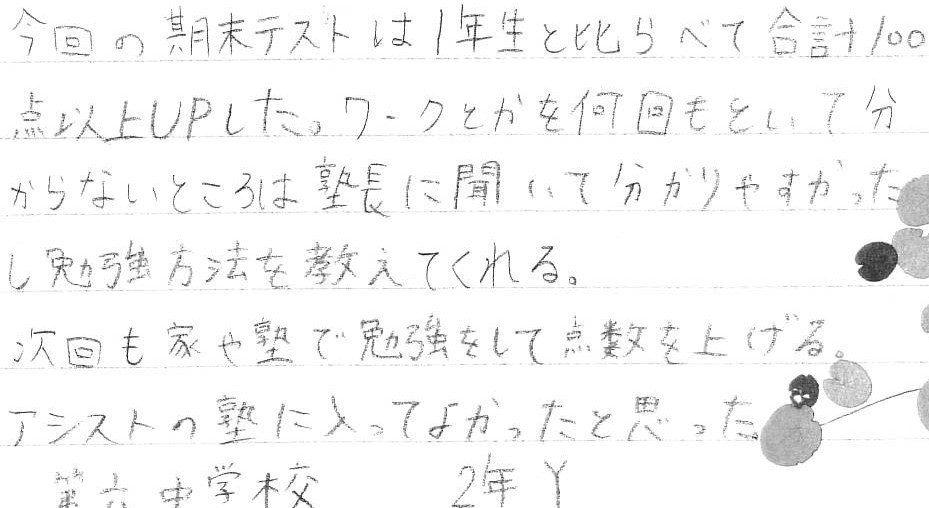 今回の期末テストは1年生と比らべて合計100
点以上UPした。ワークとかを何回もといて分
からないところは塾長に聞いて分かりやすかった
し勉強方法を教えてくれる。
次回も家や塾で勉強をして点数を上げる。
アシストの塾に入ってよかったと思った。
第六中学校 2年 Y